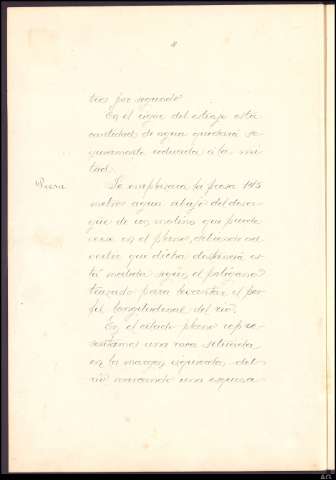 8
tros por segundo
En el rigor del estiaje esta
cantidad de agua quedará se
guramente reducida a la mi
tad.
Presa
Se emplazara la presa 145
metros agua abajo del desa
güe de un molino que puede
verse en el plano, debiendo ad
vertir que dicha distancia es
tá medida según el poligono
trazado para levantar el per
fil longitudinal del rio.
En el citado plano repre
sentamos una roca situada
en la margen izquierda del
rio marcando una esquina